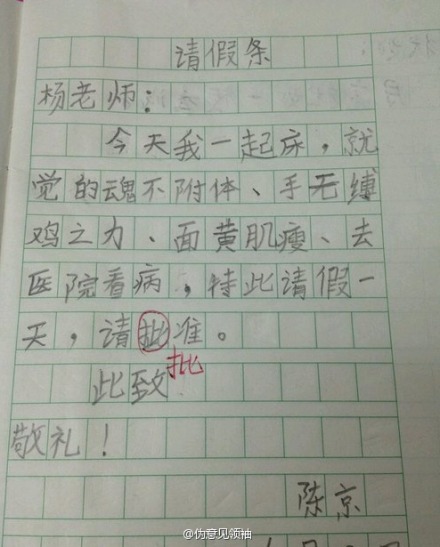 请假条
杨老师：
今天我一起床，就
觉的魂不附体、手无缚
鸡之力、面黄肌瘦、去
医院看病，特此请假一
天，请批准。
批
此致
敬礼！
陈京
@伪意见领袖